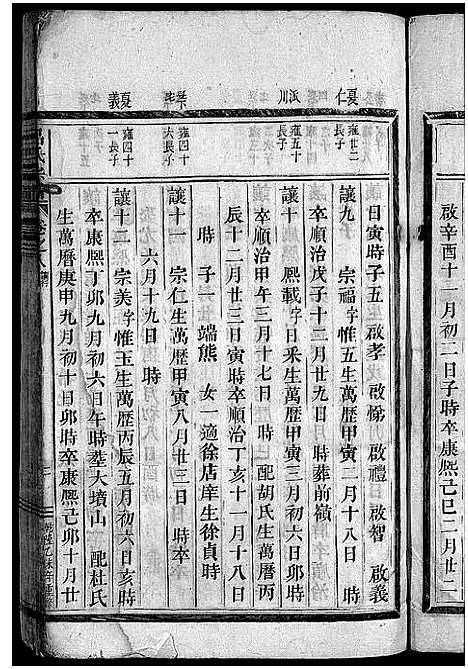 啟辛酉十一月初二日子時卒康熙己巳二月廿二
日寅時子五生啟孝　啟悌　啟禮　啟智　啟義
夏仁
雍廿二長子
讓九　宗福字惟五生萬歷甲寅二月十八日　時
卒順治戊子十二月廿九日　時葬前嶺
派川
雍五十長子
讓十　熙載字日釆生萬歷甲寅三月初六日卯時
卒順治甲午三月十七日　時　配胡氏生萬曆丙
辰十二月廿三日寅時卒順治丁亥十一月十七日
時　子一　端熊　女一適徐店庠生徐貞時
雍四十六長子
讓十一　宗仁生萬歷甲寅八月廿三日　時卒
六月十九日　時
夏義
雍四十一長子
讓十二　宗美字惟玉生萬歷丙辰五月初六日亥時
卒康熙丁卯九月初六日午時塟大墳山　配杜氏
生萬曆庚申九月初十日卯時卒康熙己卯十月廿